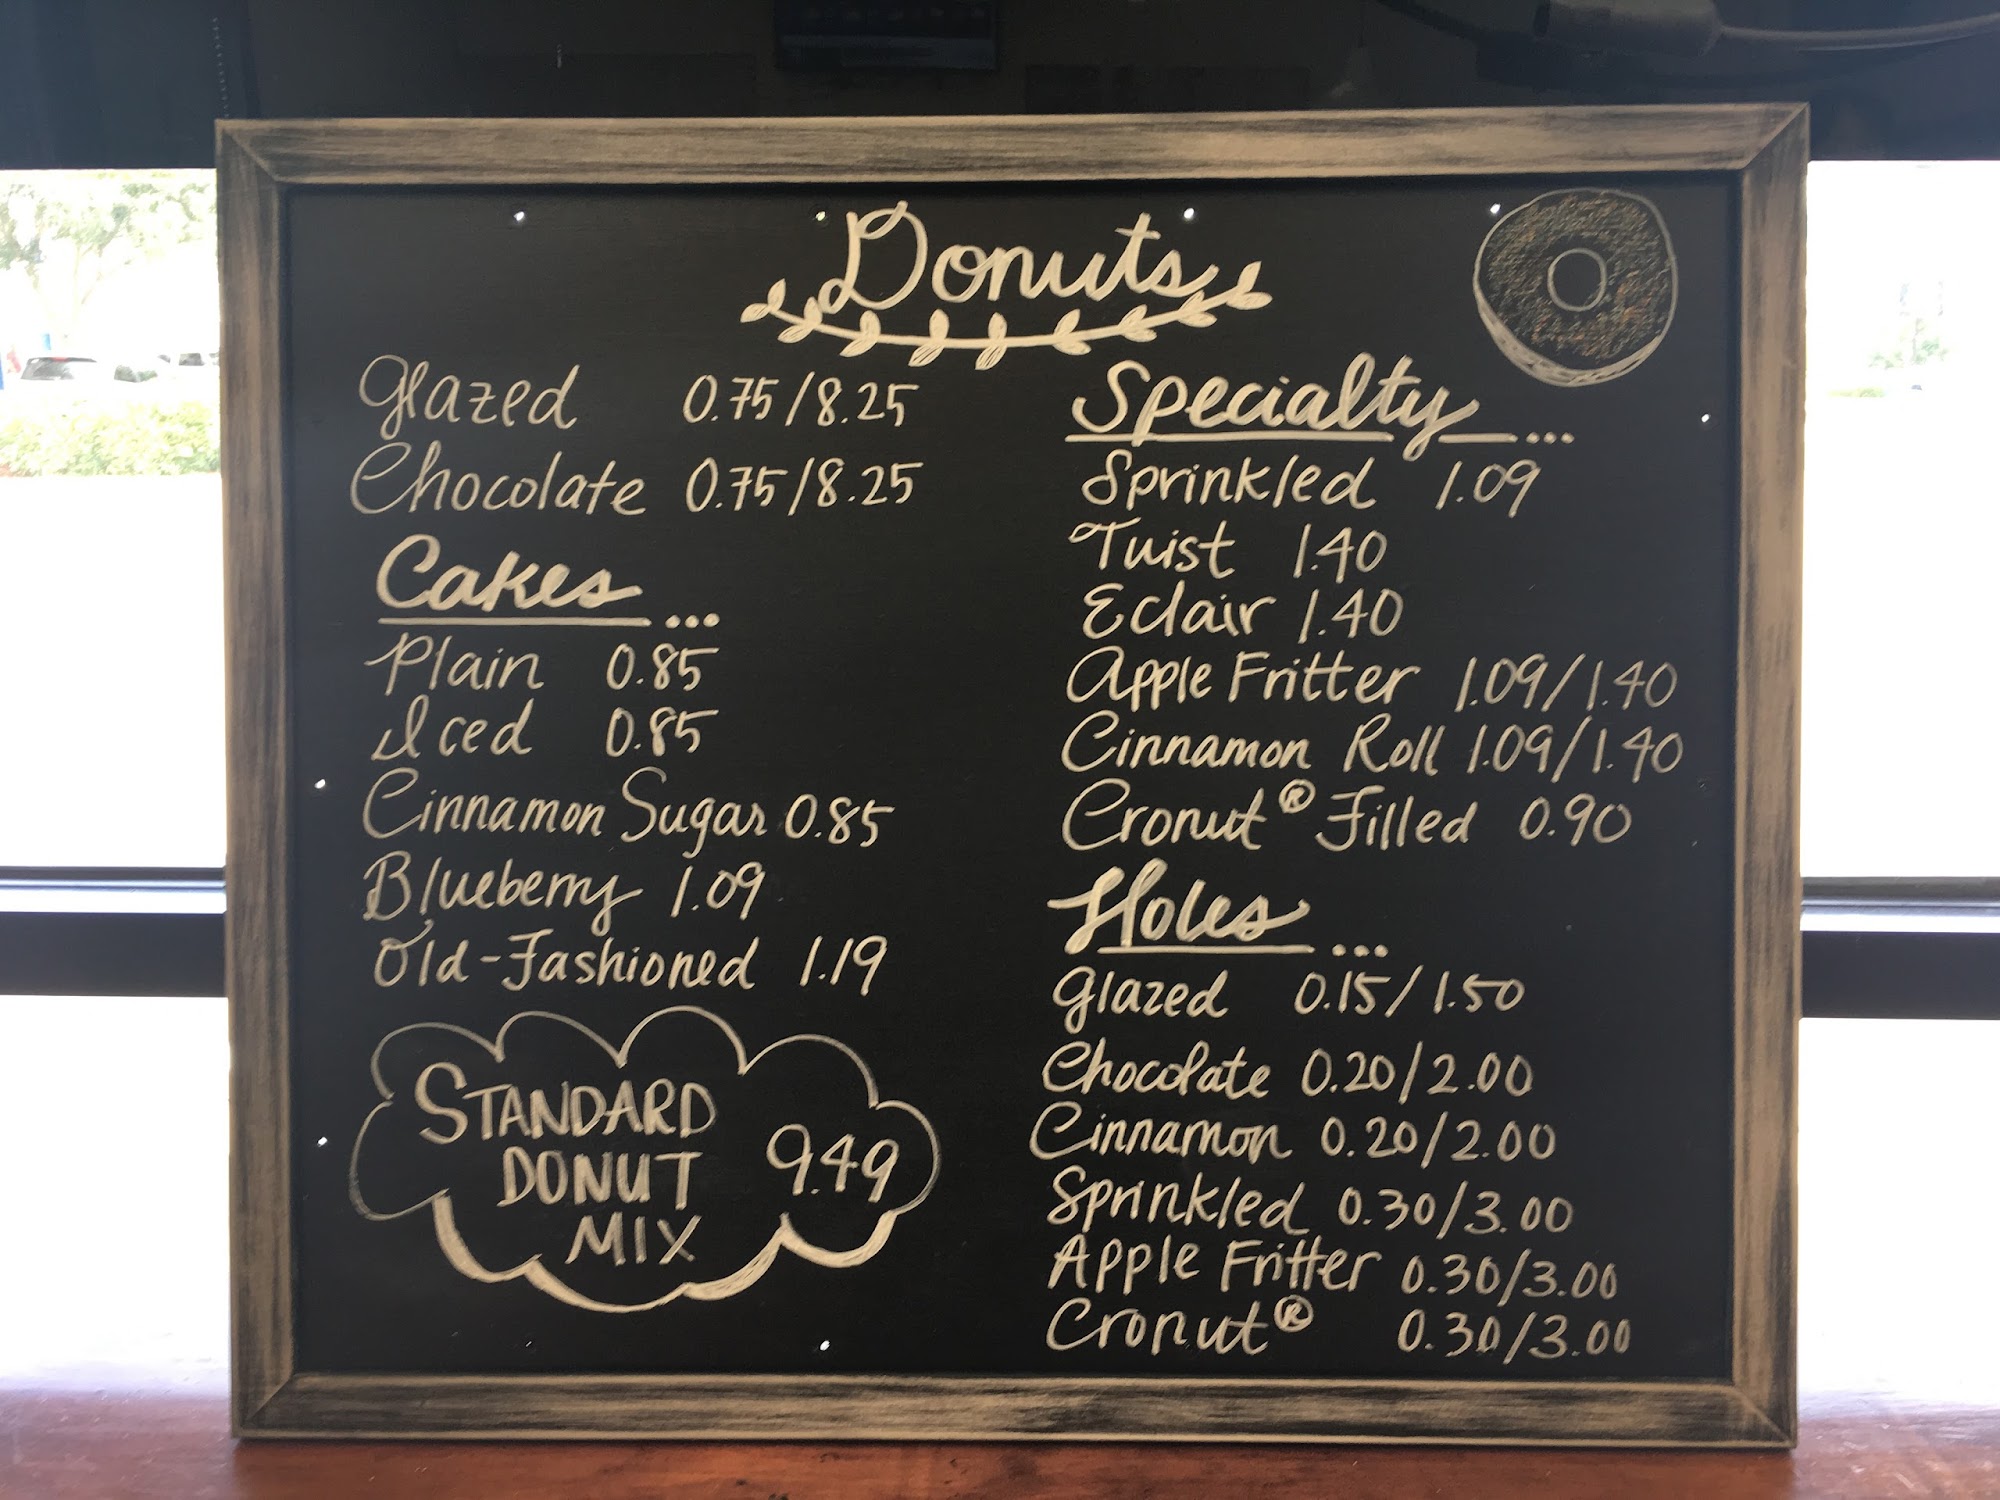 Donuts
Glazed 0.75/8.25
Chocolate 0.75/8.25
Cakes...
Plain 0.85
Iced 0.85
Cinnamon Sugar 0.85
Blueberry 1.09
Old-Fashioned 1.19
STANDARD
DONUT
MIX
9.49
Specialty...
Sprinkled 1.09
Twist 1.40
Eclair 1.40
Apple Fritter 1.09/1.40
Cinnamon Roll 1.09/1.40
Cronut® Filled 0.90
Holes...
Glazed 0.15/1.50
Chocolate 0.20/2.00
Cinnamon 0.20/2.00
Sprinkled 0.30/3.00
Apple Fritter 0.30/3.00
Cronut® 0.30/3.00